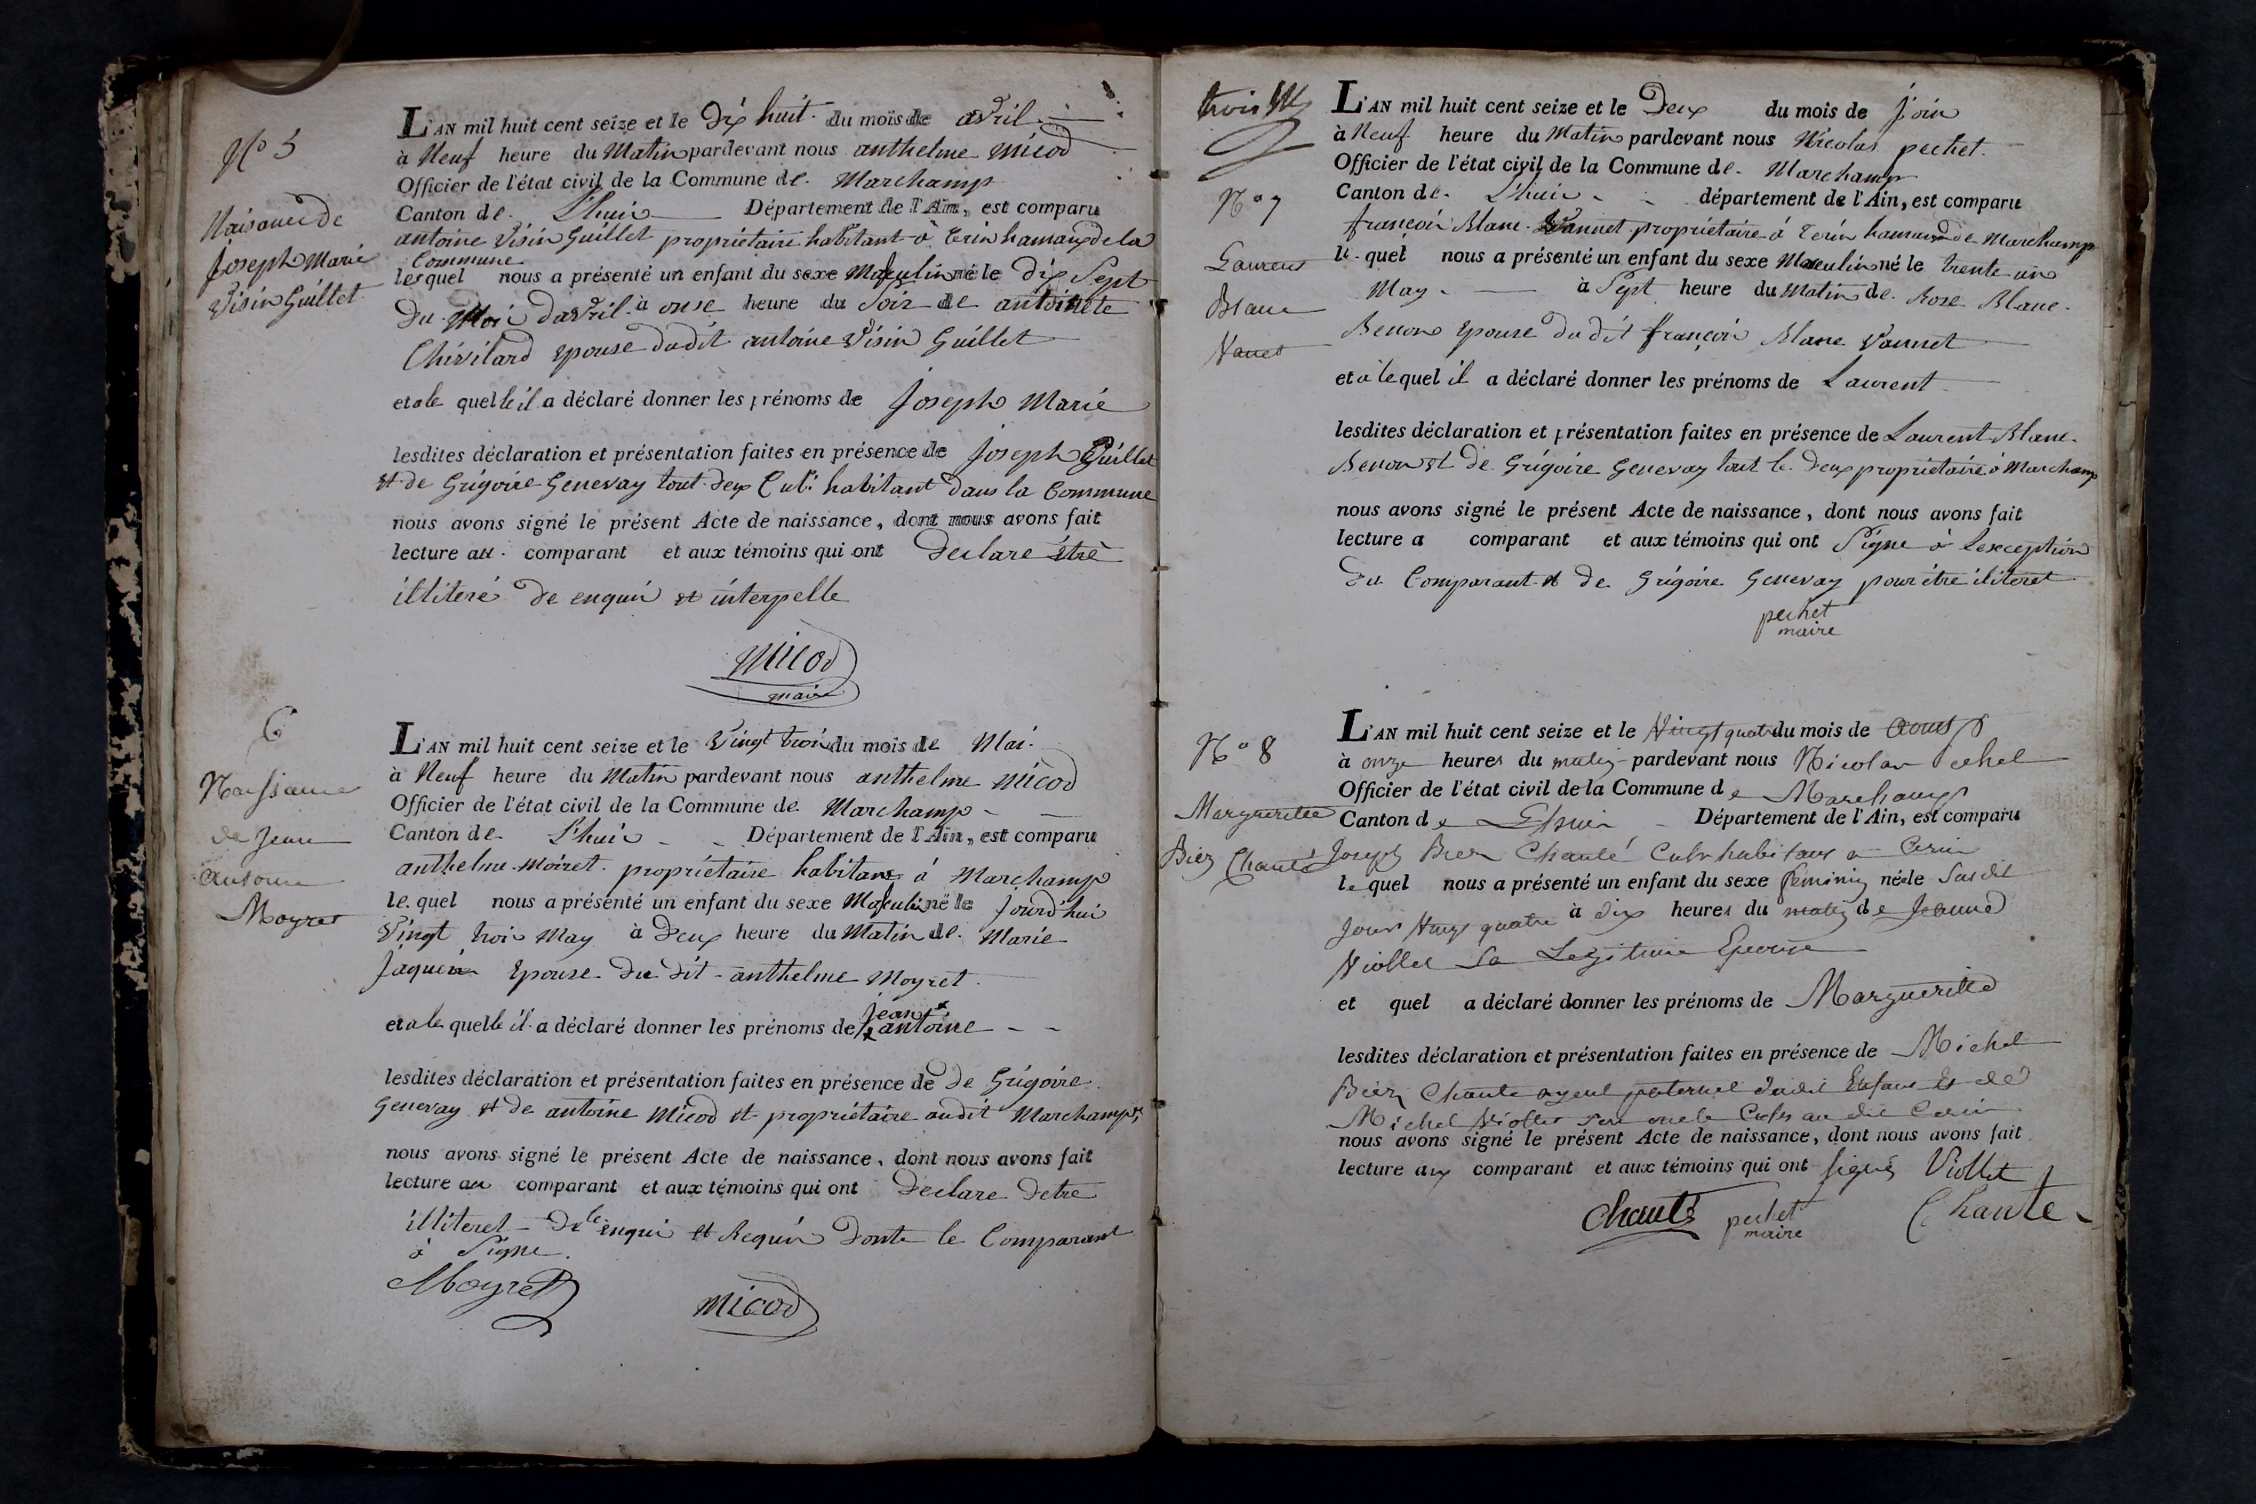 N° 5
Naisance de
Joseph Marie
Visin Guillet
L'AN mil huit cent seize et le dix huit du mois de avril
à Neuf heure du Matin pardevant nous anthelme micod
Officier de l'état civil de la Commune de Marchamp
Canton de L'huis Département de l'Ain, est comparu
antoine Visin Guillet propriétaire habitant à Cerin hamaux de la
Commune
lesquel nous a présenté un enfant du sexe Masculin né le dix Sept
du Moi d'avril à onse heure du Soir de antoinete
Chivilard epouse dudit antoine Visin Guillet
et a le quelle il a déclaré donner les prénoms de Joseph Marie
lesdites déclaration et présentation faites en présence de Joseph Guillet
et de Grigoire Genevay tout deux Cult. habitant dans la Commune
nous avons signé le présent Acte de naissance, dont nous avons fait
lecture au comparant et aux témoins qui ont declare être
illiteré de enquis et interpelle
micod
maire
6
Naissance
de Jean
Antoine
Moyret
L'AN mil huit cent seize et le Vingt trois du mois de Mai
à Neuf heure du Matin pardevant nous anthelme micod
Officier de l'état civil de la Commune de Marchamp
Canton de L'huis Département de l'Ain, est comparu
anthelme Moiret propriétaire habitant à Marchamp
le quel nous a présenté un enfant du sexe Masculin né le jourd'hui
Vingt trois May à deux heure du Matin de Marie
Jaquein Epouse du dit anthelme Moyret
et a le quelle il a déclaré donner les prénoms de antoine
jean
lesdites déclaration et présentation faites en présence de de Grigoire
Genevay et de antoine Micod et propriétaire audit Marchamp
nous avons signé le présent Acte de naissance, dont nous avons fait
lecture au comparant et aux témoins qui ont declare detre
illiteret de le enqui et Requis donte le Comparant
à Signe
Moyret micod
trois
N° 7
Laurens
Blanc
Vanet
L'AN mil huit cent seize et le Deux du mois de Join
à Neuf heure du Matin pardevant nous Nicolas pechet
Officier de l'état civil de la Commune de Marchamp
Canton de L'huis département de l'Ain, est comparu
françois Blanc Vannet propriétaire à Cerin hamaud de Marchamp
le quel nous a présenté un enfant du sexe Masculin né le trente un
May à Sept heure du Matin de Rose Blanc
Benon Epouse du dit françois Blanc Vannet
et a lequel il a déclaré donner les prénoms de Laurent
lesdites déclaration et présentation faites en présence de Laurent Blanc
Benon et de Grigoire Genevay tout le deux propriétaire à Marchamp
nous avons signé le présent Acte de naissance, dont nous avons fait
lecture a comparant et aux témoins qui ont Signe à Lexception
du Comparant et de Grigoire Genevay pour être iliteret
pechet
maire
N° 8
Margueritte
Biez Chanté
L'AN mil huit cent seize et le Vingt quatre du mois de aoust
à onze heures du matin pardevant nous Nicolas pechet
Officier de l'état civil de la Commune de Marchamp
Canton de L'huis Département de l'Ain, est comparu
Joseph Biez Chanté Cultr habitant a Cerin
le quel nous a présenté un enfant du sexe féminin née le Susdit
Jour Vingt quatre à dix heures du matin de Jeanne
Viollet Sa Legitime Epouse
et quel a déclaré donner les prénoms de Margueritte
lesdites déclaration et présentation faites en présence de Michel
Biez Chante ayeul paternel dudit Enfant et de
Michel Viollet son oncle Cultr au dit Cerin
nous avons signé le présent Acte de naissance, dont nous avons fait
lecture aux comparant et aux témoins qui ont signés Viollet
Chanté pechet Chante
maire